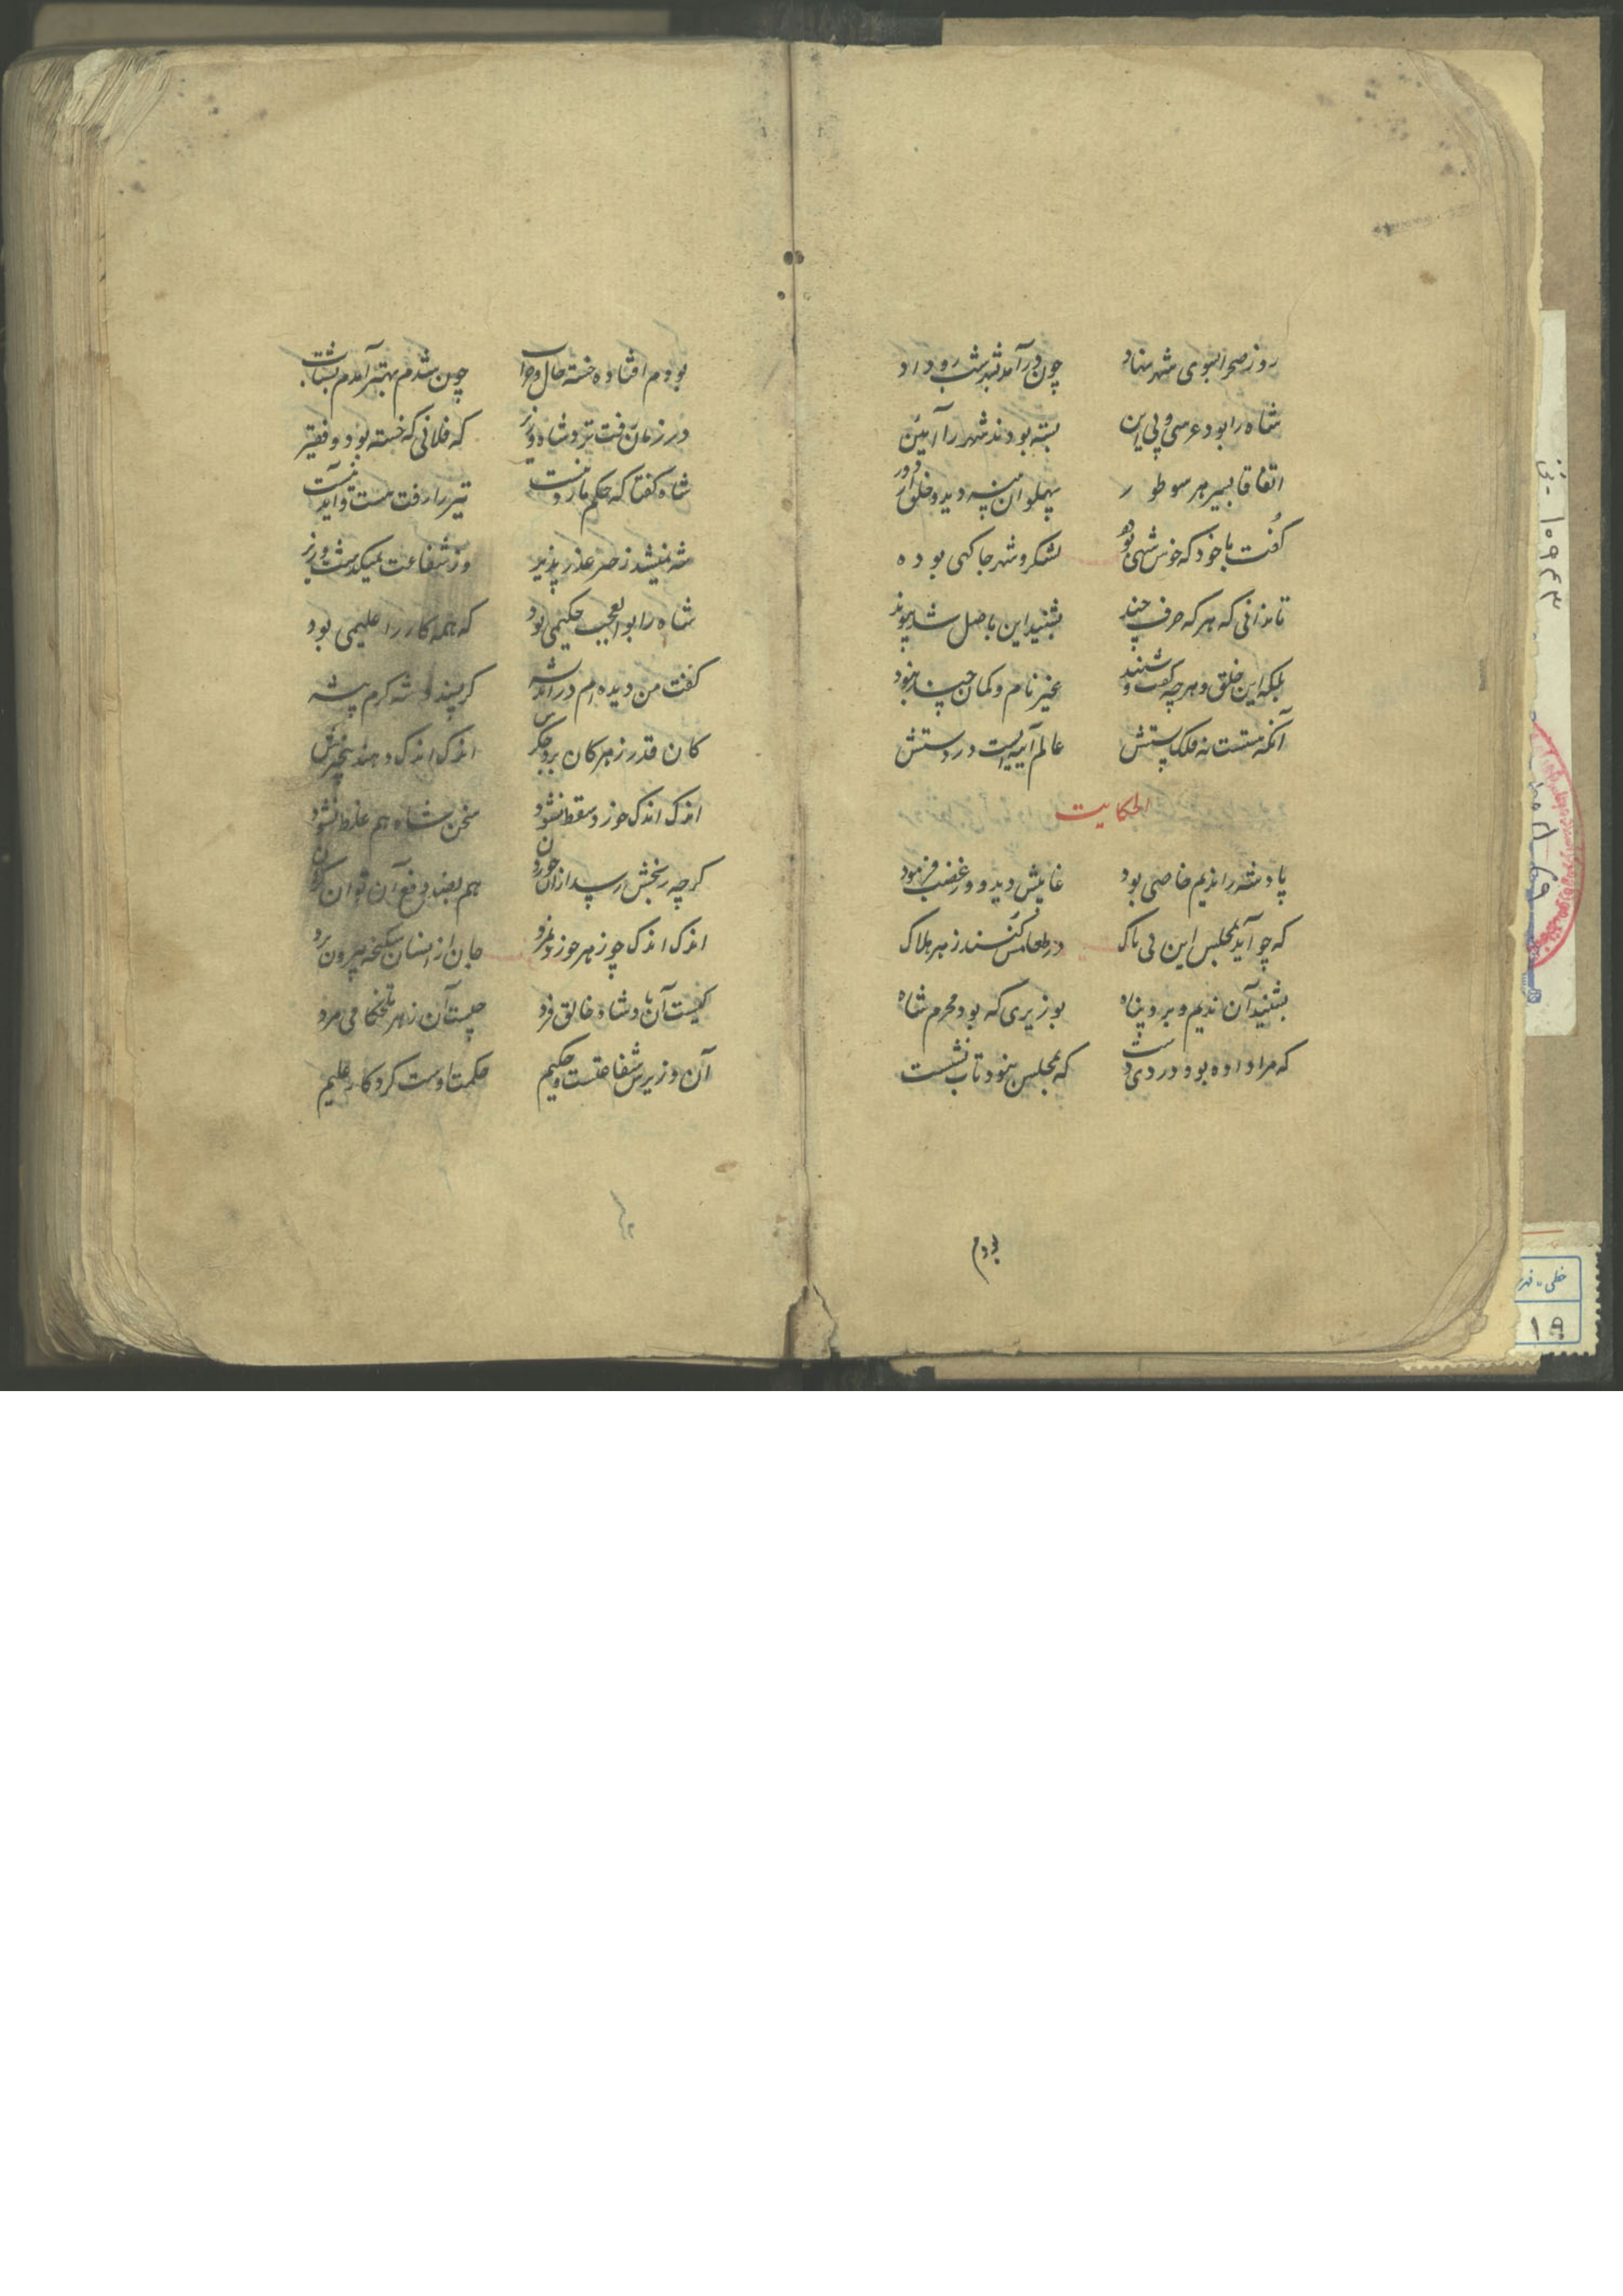 روز صحرا بسوی شهر نهاد چون درآمد بشهر شب رو داد
شاه را بود عرسی و پی این بسته بودند شهر را آیین
اتفاقا بسیر هر سو طور پهلوان پنبه دید و خلق
گفت با خود که خوش شهی بوده لشکر و شهر جا کهی بوده
تا ندانی که هر که حرف چند بشنید این باصل شد پیوند
بلکه این خلق و هر چه گفت و شنید غیر نام و کمان نبود
آنکه مستست نه فلک پستش عالم آیینه ایست در دستش
الحکایت
پادشه را ندیم خاصی بود غایبش دید و در غضب فرمود
که چو آید بمجلس این بی باک در طعامش کنند زهر هلاک
بشنید آن ندیم و برد پناه بوزیری که بود محرم شاه
که مرا داده بود دردی دست که بمجلس نبود تاب نشست
بودم
بودم افتاده خسته حال و خراب چون شدم بهتر آمدم بشتاب
در زمان رفت نزد شاه وزیر که فلانی که خسته بود و فقیر
شاه گفتا که حکم ما تیر را رفت
شه نمیشد ز حرف عذر پذیر وز شفاعت نمیگذشت وزیر
شاه را بوالعجب حکیمی بود که همه کار را علیمی بود
گفت من دیده ام در اندیشه گر پسندد شه کرم پیشه
کان قدر زهر کان برد جگرش اندک اندک دهند بیخبرش
اندک اندک خورد سقط نشود سخن شاه هم غلط نشود
گرچه رنجش رسد از آن خوردن هم بصد دفع آن توان کردن
اندک اندک چو زهر خورد و نمرد جان از انسان شکنجه بیرون برد
کیست آن پادشاه خالق فرد چیست آن زهر تلخکامی مرد
آن وزیرش شفاعتست و حکیم حکمت اوست کردگار علیم
۱۰۹۴۳
خطی
۱۹